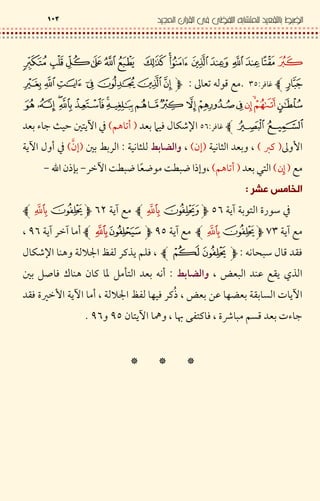 الضبط بالتقعيد للمتشابه اللفظي في القرآن المجيد ١٠٣
كَبُرَ مَقْتًا عِندَ اللَّهِ وَعِندَ الَّذِينَ ءَامَنُوا كَذَٰلِكَ يَطْبَعُ اللَّهُ عَلَىٰ كُلِّ قَلْبِ مُتَكَبِّرٍ
جَبَّارٍ ﴾ غافر: ٣٥. مع قوله تعالى : ﴿ إِنَّ الَّذِينَ يُجَٰدِلُونَ فِي ءَايَٰتِ اللَّهِ بِغَيْرِ
سُلْطَٰنٍ أَتَىٰهُمْ إِن فِي صُدُورِهِمْ إِلَّا كِبْرٌ مَّا هُم بِبَٰلِغِيهِ فَاسْتَعِذْ بِاللَّهِ إِنَّهُ هُوَ
السَّمِيعُ الْبَصِيرُ ﴾ غافر: ٥٦ الإشكال فيما بعد ( أتاهم) في الآيتين حيث جاء بعد
الأولى ( كبر ) ، وبعد الثانية (إن)، والضابط للثانية : الربط بين (إنَّ) في أول الآية
مع ( إن) التي بعد ( أتاهم) ،وإذا ضبطت موضعًا ضبطت الآخر- بإذن الله -
الخامس عشر :
في سورة التوبة آية ٥٦ ﴿ وَيَحْلِفُونَ بِاللَّهِ ﴾ مع آية ٦٢ ﴿ يَحْلِفُونَ بِاللَّهِ ﴾
مع آية ٧٣ ﴿ يَحْلِفُونَ بِاللَّهِ ﴾ مع آية ٩٥ ﴿ سَيَحْلِفُونَ بِاللَّهِ ﴾ أما آخر آية ٩٦ ،
فقد قال سبحانه : ﴿ يَحْلِفُونَ لَكُمْ ﴾ ، فلم يذكر لفظ الجلالة وهنا الإشكال
الذي يقع عند البعض ، والضابط : أنه بعد التأمل لما كان هناك فاصل بين
الآيات السابقة بعضها عن بعض ، ذُكر فيها لفظ الجلالة ، أما الآية الأخيرة فقد
جاءت بعد قسم مباشرة ، فاكتفى بها ، وهما الآيتان ٩٥ و٩٦ .
* * *